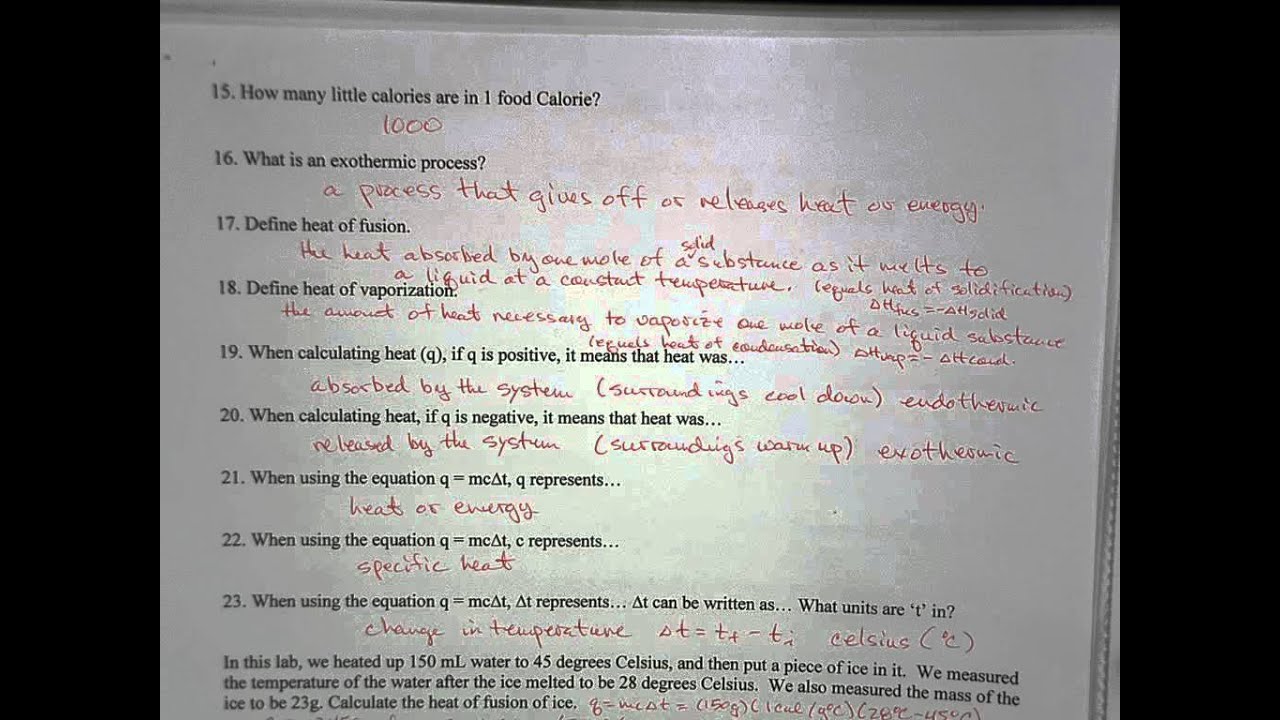 15. How many little calories are in 1 food Calorie?
1000
16. What is an exothermic process?
a process that gives off or releases heat or energy.
17. Define heat of fusion.
solid
the heat absorbed by one mole of a ^ substance as it melts to
a liquid at a constant temperature. (equals heat of solidification)
18. Define heat of vaporization.
ΔHfus = -ΔHsolid
the amount of heat necessary to vaporize one mole of a liquid substance
(equals heat of condensation) ΔHvap = - ΔHcond.
19. When calculating heat (q), if q is positive, it means that heat was…
absorbed by the system (surroundings cool down) endothermic
20. When calculating heat, if q is negative, it means that heat was…
released by the system (surroundings warm up) exothermic
21. When using the equation q = mcΔt, q represents…
heat or energy
22. When using the equation q = mcΔt, c represents…
specific heat
23. When using the equation q = mcΔt, Δt represents… Δt can be written as… What units are ‘t’ in?
change in temperature Δt = tf - ti celsius (°C)
In this lab, we heated up 150 mL water to 45 degrees Celsius, and then put a piece of ice in it. We measured
the temperature of the water after the ice melted to be 28 degrees Celsius. We also measured the mass of the
ice to be 23g. Calculate the heat of fusion of ice. q = mcΔt = (150g)(1cal/g°C)(28°C-45°C)